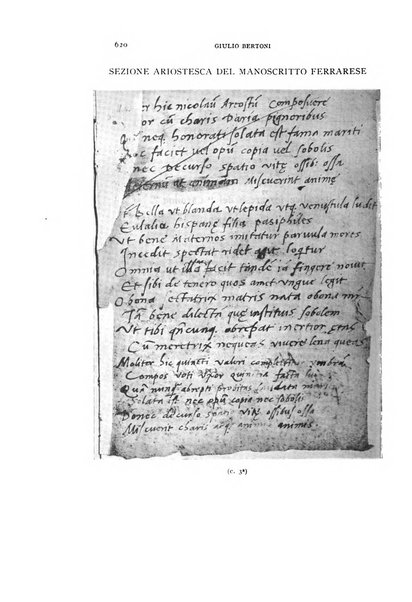 620
GIULIO BERTONI
SEZIONE ARIOSTESCA DEL MANOSCRITTO FERRARESE
hic nicolaū Areostū Composuere
cū charis Daria pignoribus
neq honorati solata est fama mariti
Hoc faciet vel opū copia vel sobolis
nec decurso spatio vitę ossib: ossa
Miscuerint animę
Vt bella vt blanda vt lepida vtq venustula ludit
Eulalia hispanę filia pasiphiles
Vt bene Maternos imitatur parvula mores
Incedit spectat ridet loqtur
Omnia vt illa facit tandē iā fingere novit
Et sibi de tenero quos amet vngue legit
O bona sectatrix matris nata o bona mr
Tā bene dilectā que instituis sobolem
Vt tibi qn̄cunq obrepat inertior ętas
Cū meretrix nequeas vivere lena queas
Moliter hic quincti valeri complectit umbrā
Compos voti Vxor facta
Quā nunq abrepti probitas
Solata est nec opū copia nec sobolis
Donec decurso spatio vitę ossibus ossa
Miscuent charis atq animis
(c. 3ª)